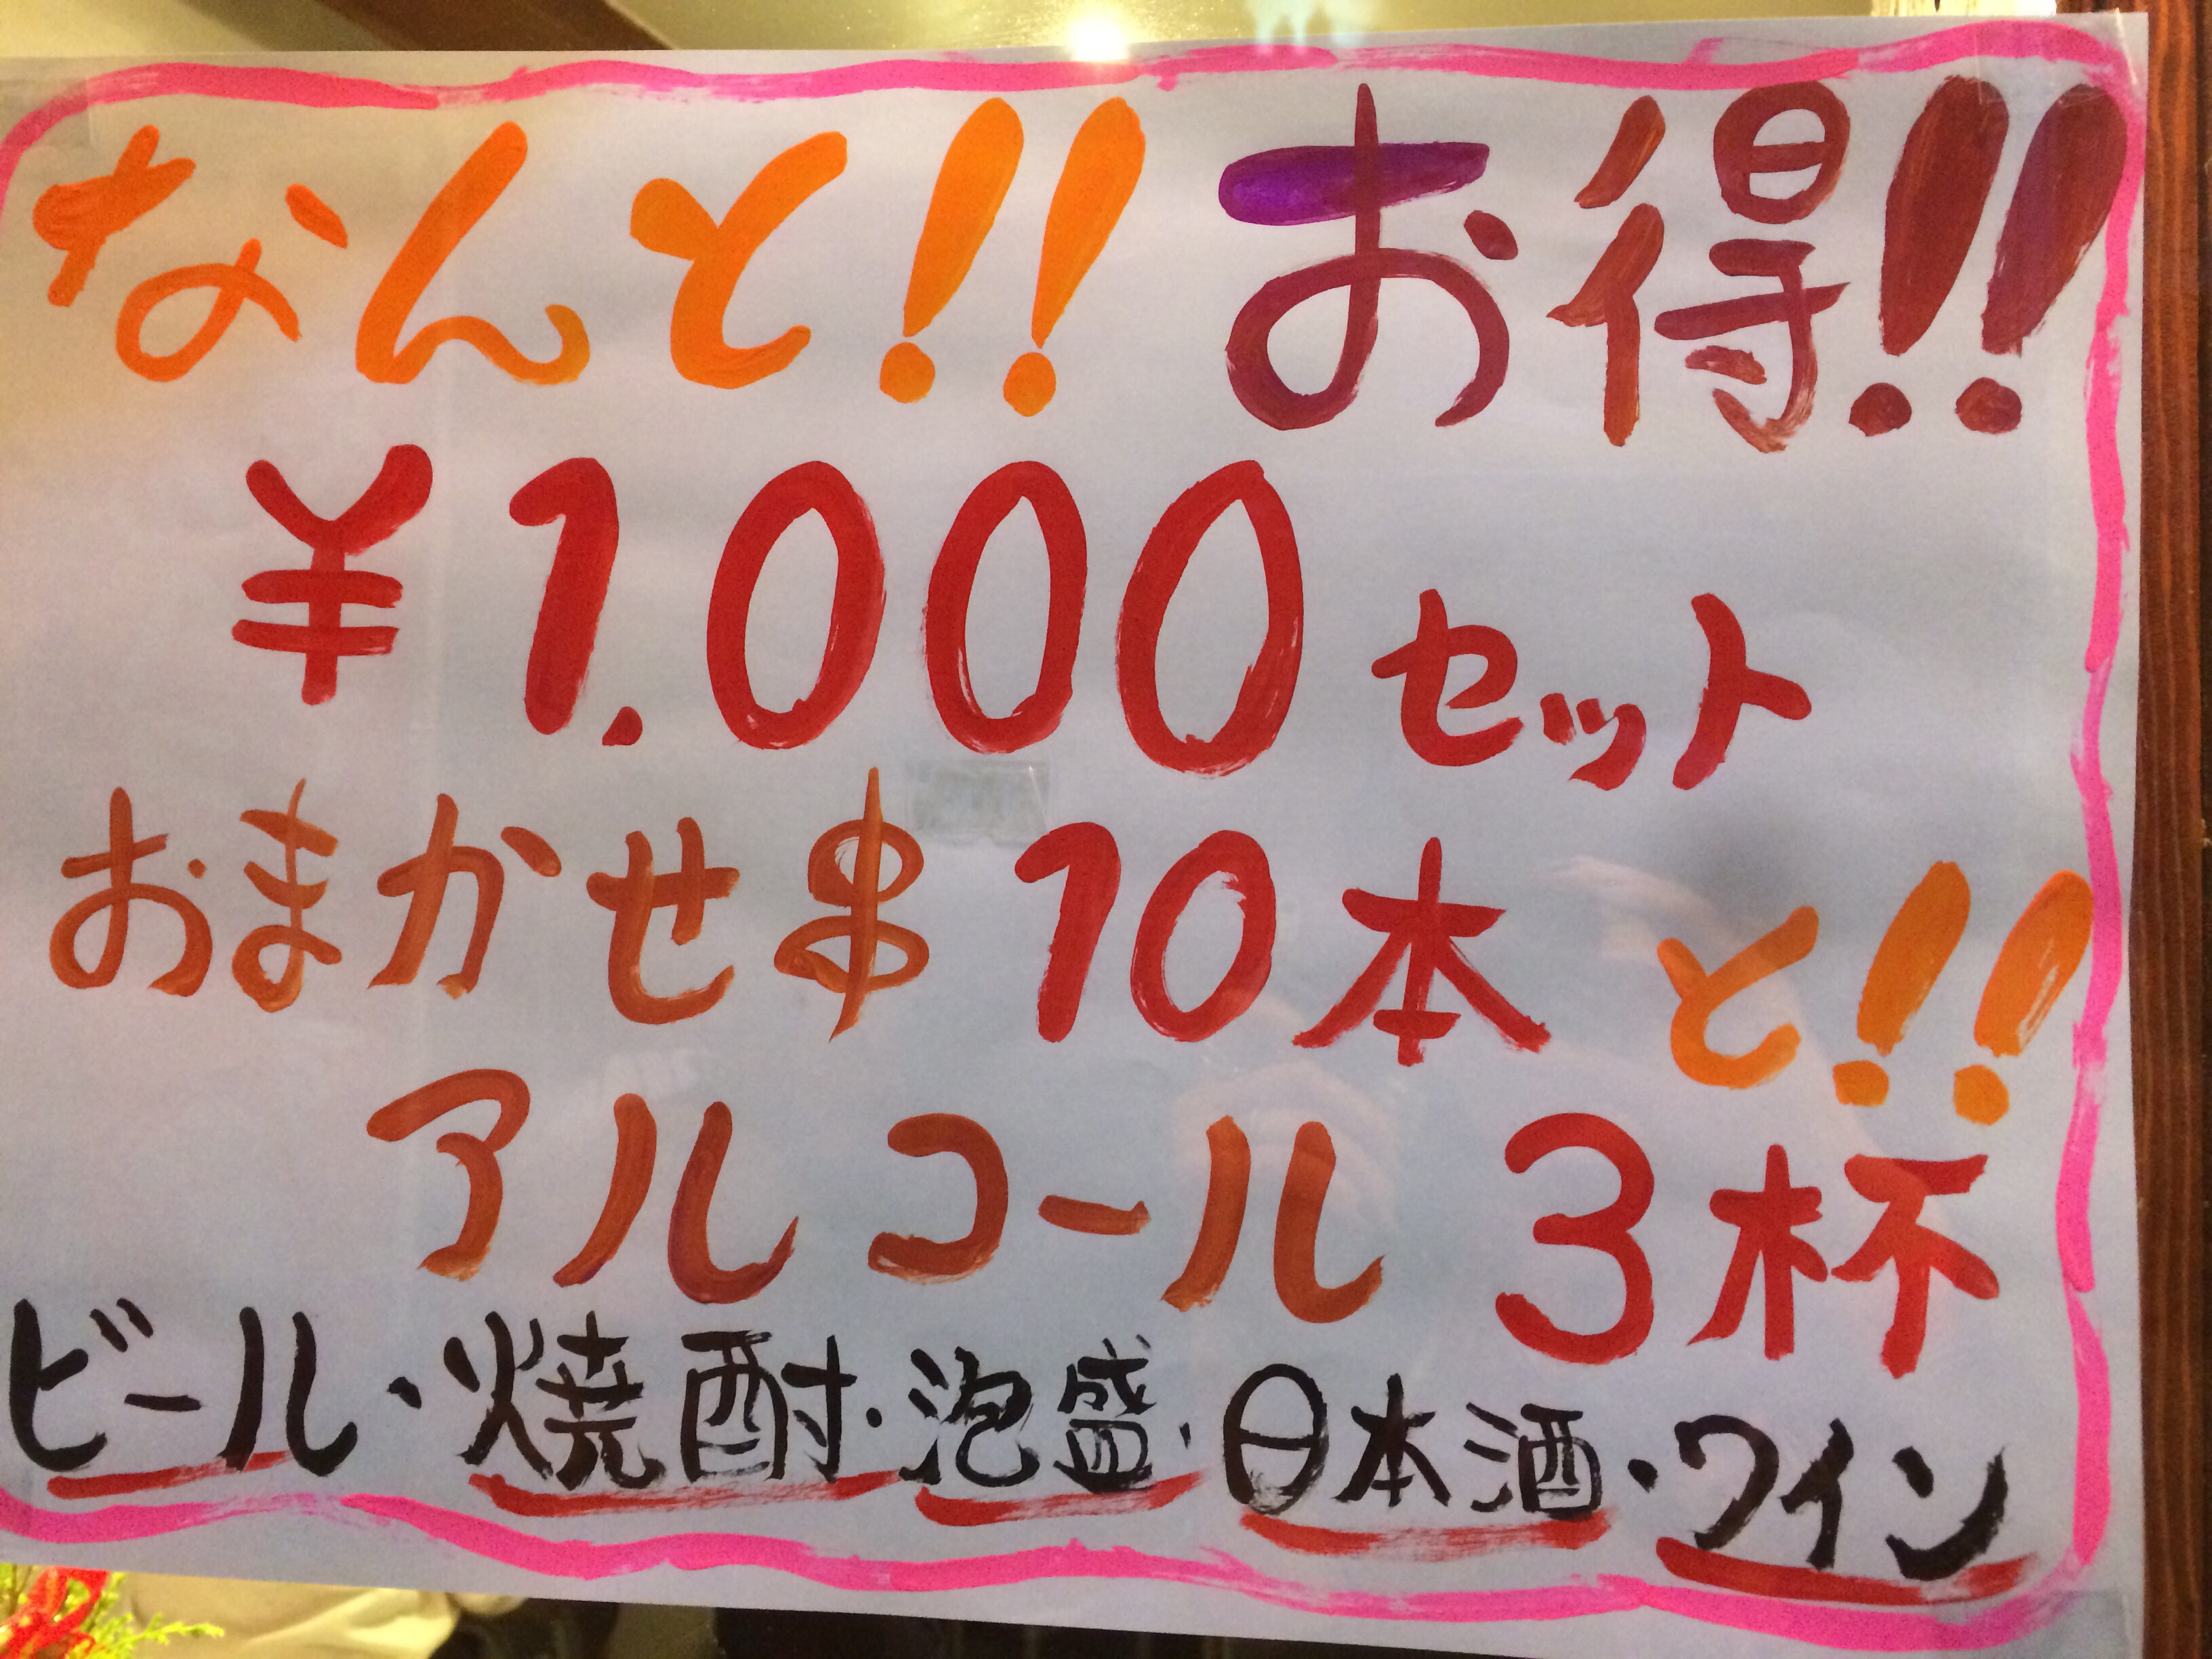 なんと!! お得!!
¥1.000セット
おまかせ串10本と!!
アルコール3杯
ビール・焼酎・泡盛・日本酒・ワイン